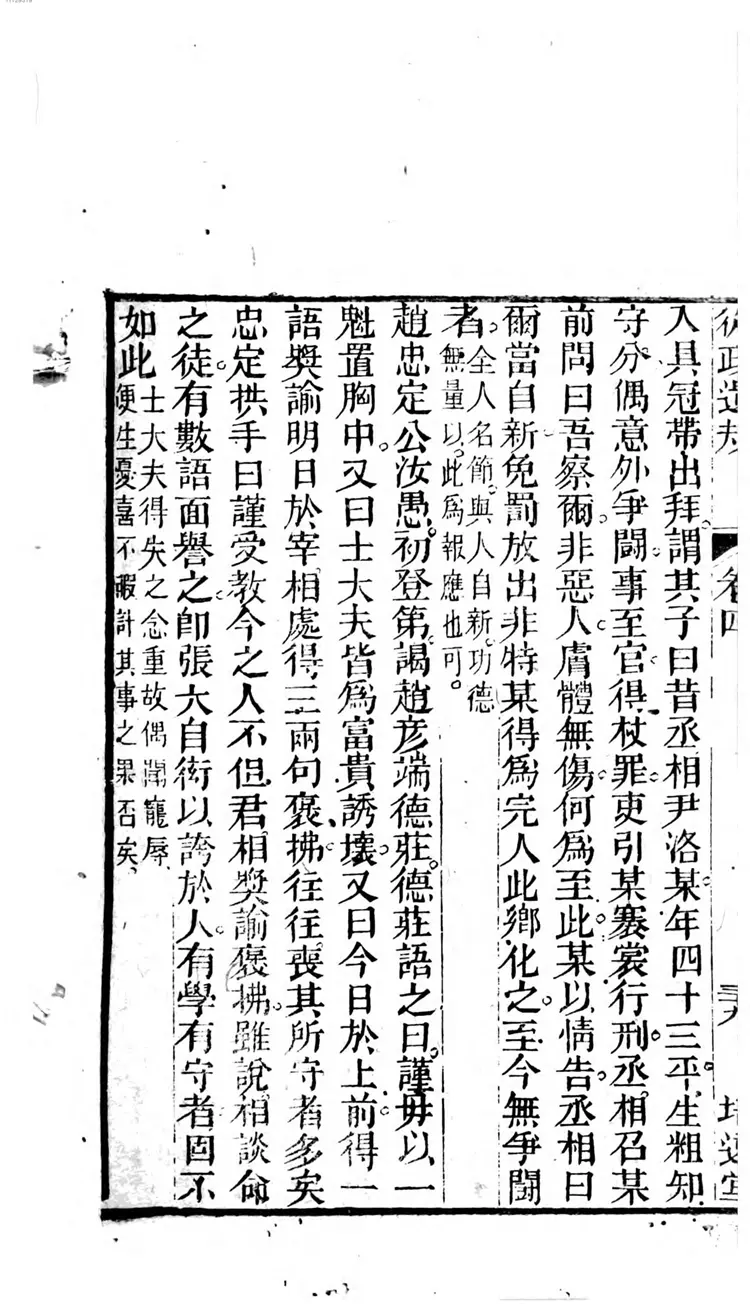 從政遺規 卷四 培遠堂
人具冠帶出拜。謂其子曰昔丞相尹洛。某年四十三。平生粗知
守分。偶意外爭鬪。事至官。得杖罪。吏引某褰裳行刑。丞相召某
前問曰吾察爾。非惡人。膚體無傷。何爲至此。某以情告。丞相曰
爾當自新。免罰放出。非特某得爲完人。此鄉化之。至今無爭鬪
者。全人名節。與人自新。功德
無量。以此爲報應也可。
趙忠定公汝愚。初登第。謁趙彥端德莊。德莊語之曰。謹毋以一
魁置胸中。又曰士大夫皆爲富貴誘壞。又曰今日於上前得一
語奬諭。明日於宰相處得三兩句褒拂。往往喪其所守者多矣
忠定拱手曰謹受教。今之人不但君相奬諭褒拂。雖說相談命
之徒。有數語面譽之。卽張大自衒。以誇於人。有學有守者固不
如此 士大夫得失之念重。故偶聞寵辱。
便生憂喜。不暇計其事之果否矣。